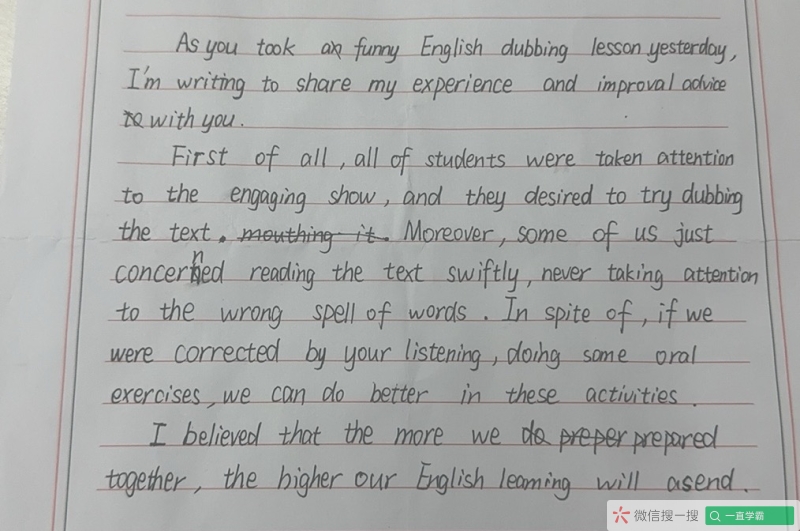 As you took an funny English dubbing lesson yesterday,
I'm writing to share my experience and improval advice
to with you.
First of all, all of students were taken attention
to the engaging show, and they desired to try dubbing
the text. mouthing it. Moreover, some of us just
concerned reading the text swiftly, never taking attention
to the wrong spell of words. In spite of, if we
were corrected by your listening, doing some oral
exercises, we can do better in these activities.
I believed that the more we do preper prepared
together, the higher our English learning will asend.
微信搜一搜 一直学霸